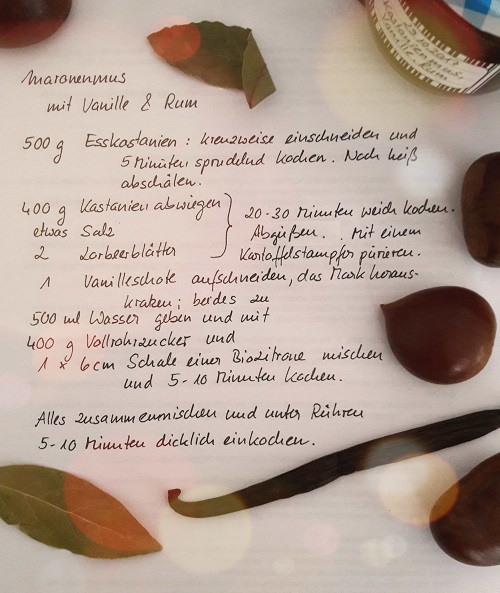 Maronenmus
mit Vanille & Rum
500 g Esskastanien : kreuzweise einschneiden und
5 Minuten sprudelnd kochen. Noch heiß
abschälen.
400 g Kastanien abwiegen
etwas Salz
2 Lorbeerblätter
20-30 Minuten weich kochen.
Abgießen. Mit einem
Kartoffelstampfer pürieren.
1 Vanilleschote aufschneiden, das Mark heraus-
kratzen; beides zu
500 ml Wasser geben und mit
400 g Vollrohrzucker und
1 x 6 cm Schale einer Biozitrone mischen
und 5-10 Minuten kochen.
Alles zusammenmischen und unter Rühren
5-10 Minuten dicklich einkochen.